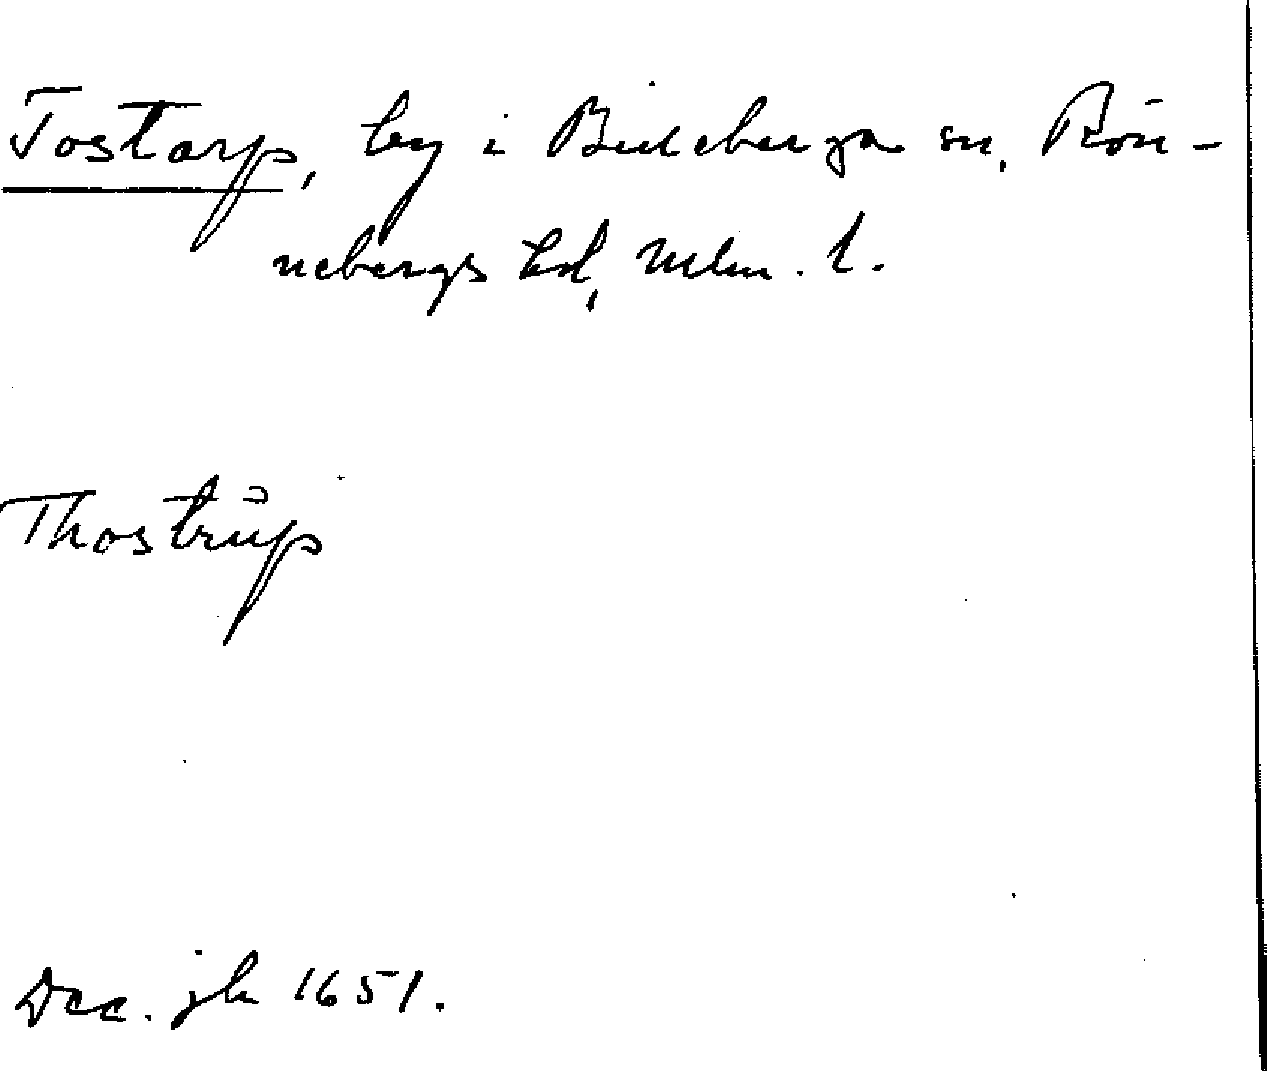 Tostarp, by i Billeberga sn, Rön-
nebergs hd, Mlm. l.
Thostrŭp
Dec. jb 1651.